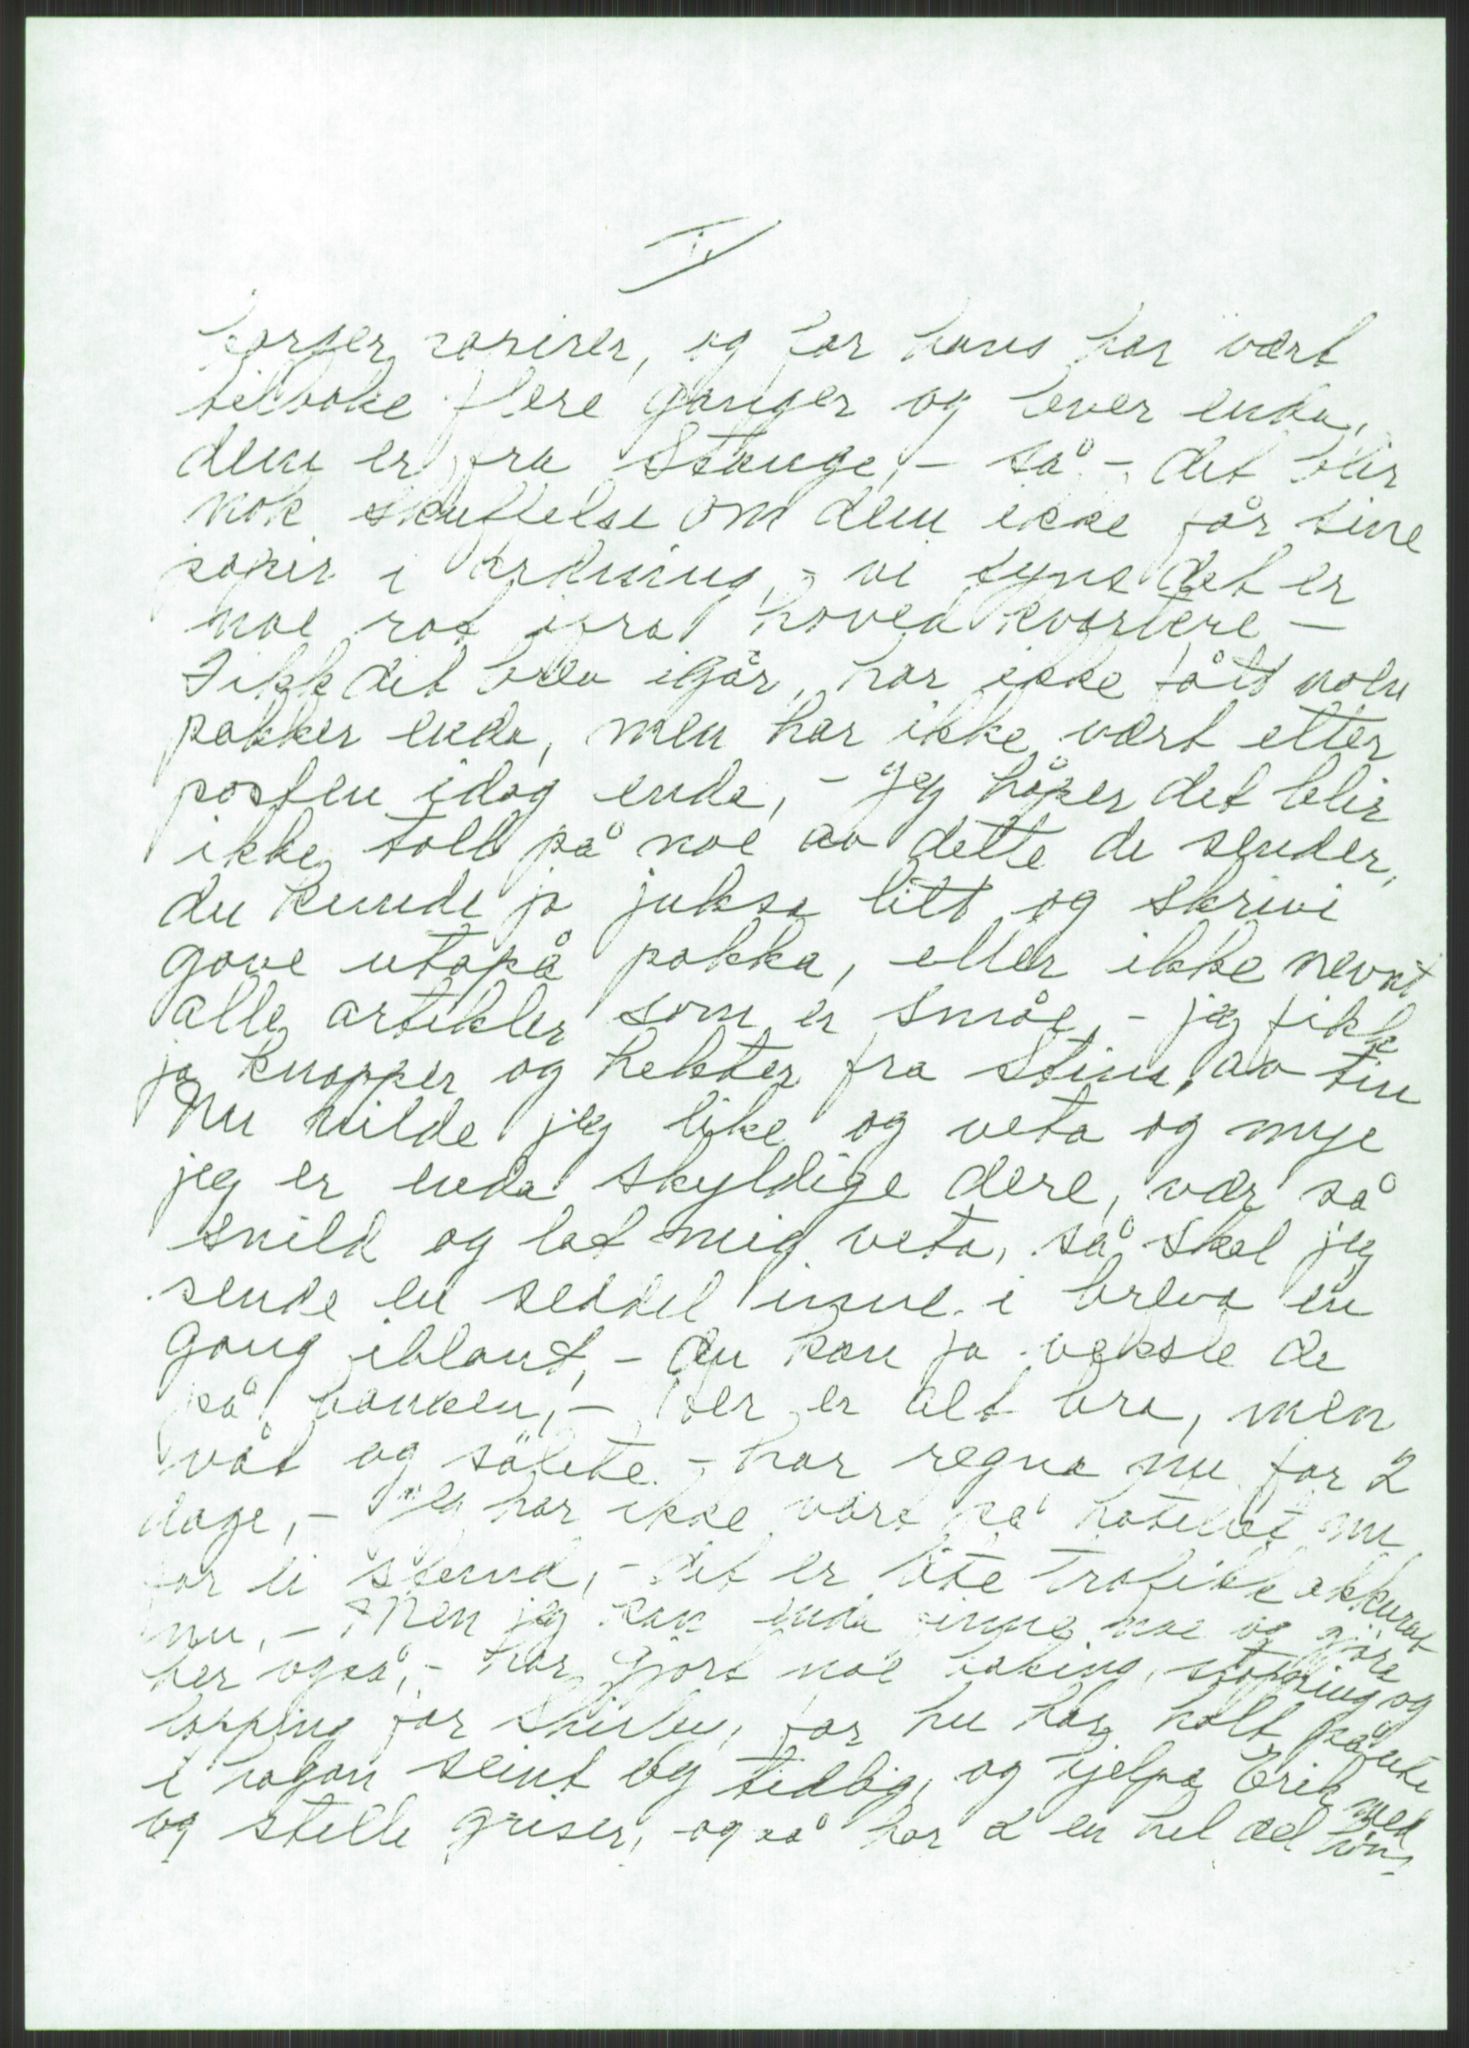 borger papirer, og far hans har vært
tilbake flere ganger og lever enda,
dem er fra Stange, - så - det blir
nok skuffelse om dem ikke får sine
papir i ordning, - vi syns det er
noe rot ifra hovedkvartere -
Fikk dit brev igår, har ikke fått noen
pakker enda, men har ikke vært etter
posten idag enda, - jeg håper det blir
ikke toll på noe av dette de sender,
du kunde jo juksa litt og skrivi
gave utapå pakka, eller ikke nevnt
alle artikler som er småe, - jeg fikk
jo knapper og hekter fra Stina, av tin
Nu vilde jeg like og veta og mye
jeg er enda skyldige dere, vær så
snild og lat mig veta, så skal jeg
sende en seddel inne i breva en
gang iblant, - du kan jo veksle de
på banken, - Her er alt bra, men
våt og sölete - har regna nu for 2
dage, - Jeg har ikke vært på hotellet nu
for ei stund, - det er lite trafikk akkurat
nu, - Men jeg kan enda finne noe og gjöra
her også, - har gjort noe baking, stopping og
lapping for Shirley, for hu har holt på ute
i hagan seint og tidlig, og hjelpe Erik med
og stelle griser, også har de en hel del höns